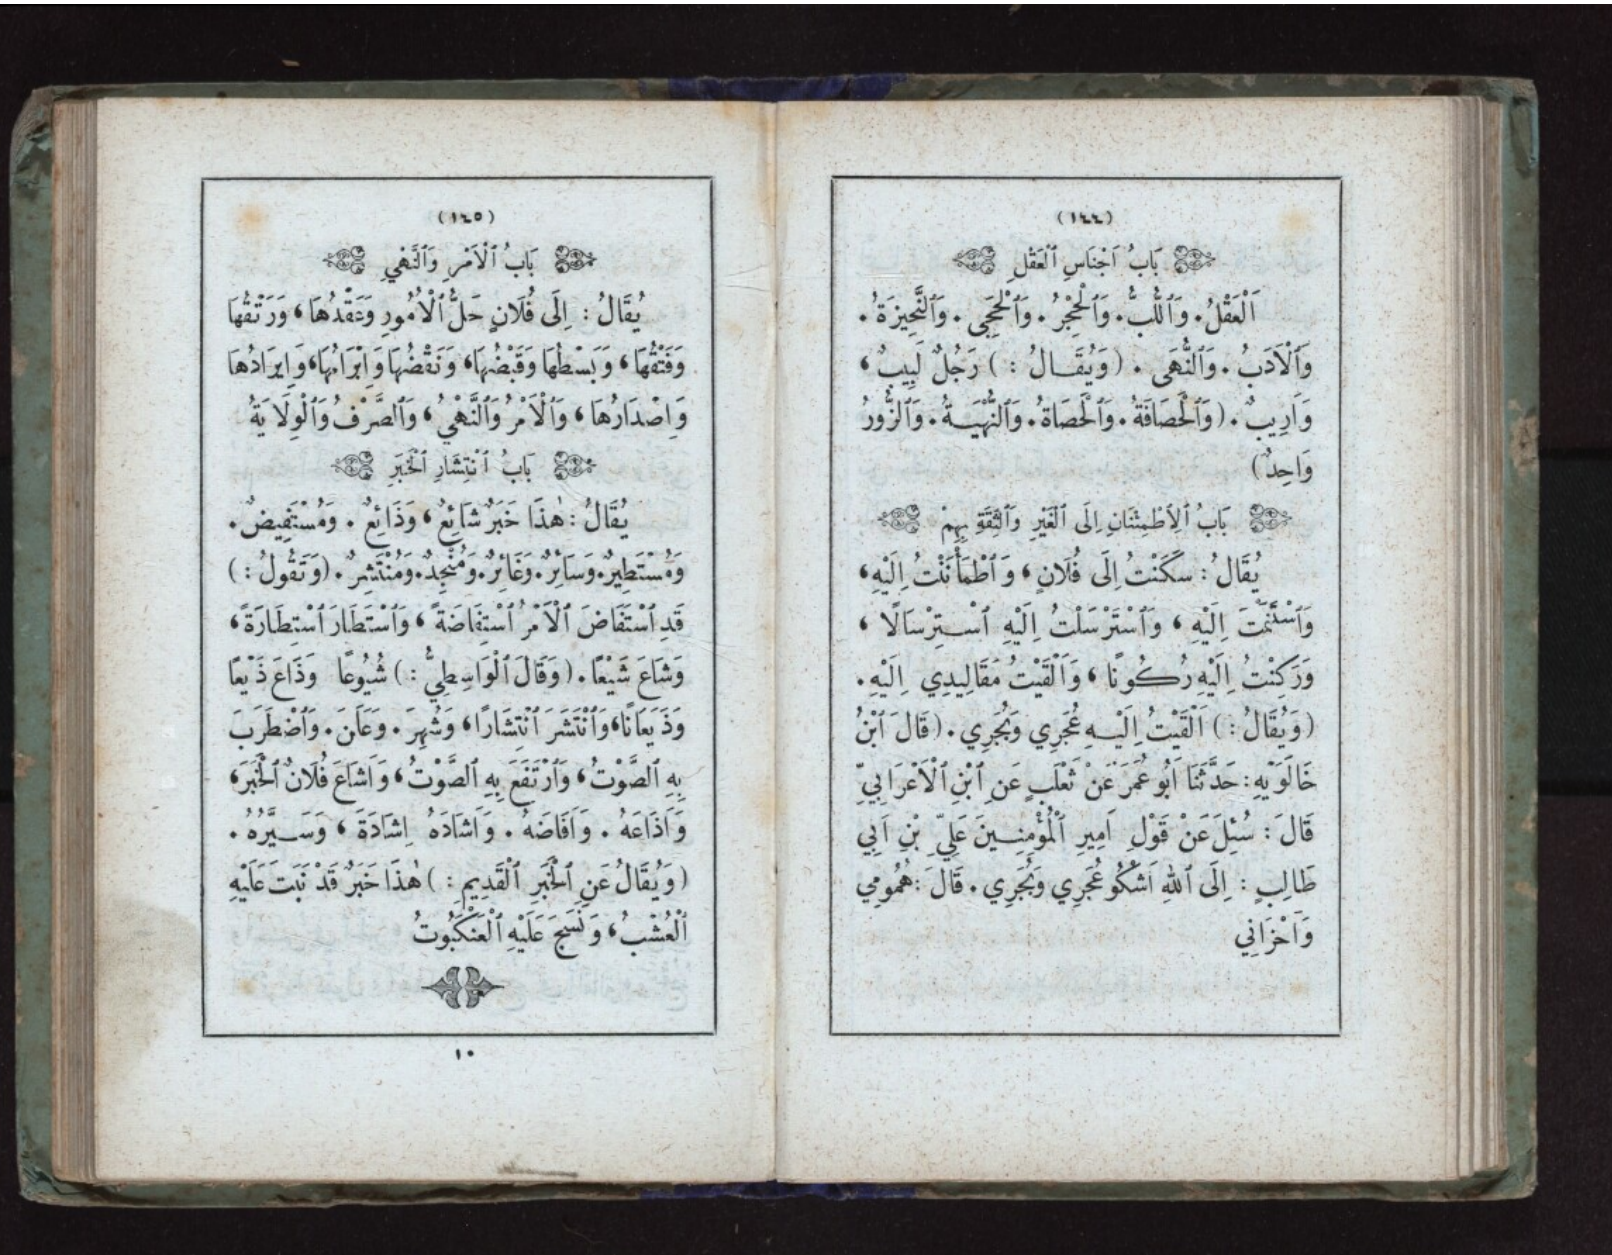 (١٤٤)
بَابُ اَجْنَاسِ ٱلْعَقْلِ
اَلْعَقْلُ. وَٱللُّبُّ. وَٱلْحِجْرُ. وَٱلْحِجَى. وَٱلنَّحِيزَةُ.
وَٱلْاَدَبُ. وَٱلنُّهَى. (وَيُقَالُ:) رَجُلٌ لَبِيبٌ،
وَاَرِيبٌ. (وَٱلْحَصَافَةُ. وَٱلْحَصَاةُ. وَٱلنُّهْيَةُ. وَٱلزُّورُ
وَاحِدٌ)
بَابُ ٱلِٱطْمِئْنَانِ اِلَى ٱلْغَيْرِ وَٱلثِّقَةِ بِهِمْ
يُقَالُ: سَكَنْتُ اِلَى فُلَانٍ، وَٱطْمَأْنَنْتُ اِلَيْهِ،
وَٱسْتَنَمْتُ اِلَيْهِ، وَٱسْتَرْسَلْتُ اِلَيْهِ ٱسْتِرْسَالًا،
وَرَكِنْتُ اِلَيْهِ رُكُونًا، وَاَلْقَيْتُ مَقَالِيدِي اِلَيْهِ.
(وَيُقَالُ:) اَلْقَيْتُ اِلَيْهِ عُجَرِي وَبُجَرِي. (قَالَ ٱبْنُ
خَالَوَيْهِ: حَدَّثَنَا اَبُو عُمَرَ عَنْ ثَعْلَبٍ عَنِ ٱبْنِ ٱلْاَعْرَابِيِّ
قَالَ: سُئِلَ عَنْ قَوْلِ اَمِيرِ ٱلْمُؤْمِنِينَ عَلِيِّ بْنِ اَبِي
طَالِبٍ: اِلَى ٱللهِ اَشْكُو عُجَرِي وَبُجَرِي. قَالَ: هُمُومِي
وَاَحْزَانِي
(١٤٥)
بَابُ ٱلْاَمْرِ وَٱلنَّهْيِ
يُقَالُ: اِلَى فُلَانٍ حَلُّ ٱلْاُمُورِ وَعَقْدُهَا، وَرَتْقُهَا
وَفَتْقُهَا، وَبَسْطُهَا وَقَبْضُهَا، وَنَقْضُهَا وَاِبْرَامُهَا، وَاِيرَادُهَا
وَاِصْدَارُهَا، وَٱلْاَمْرُ وَٱلنَّهْيُ، وَٱلصَّرْفُ وَٱلْوِلَايَةُ
بَابُ ٱنْتِشَارِ ٱلْخَبَرِ
يُقَالُ: هٰذَا خَبَرٌ شَائِعٌ، وَذَائِعٌ. وَمُسْتَفِيضٌ.
وَمُسْتَطِيرٌ. وَسَائِرٌ. وَغَائِرٌ. وَمُنْجِدٌ. وَمُنْتَشِرٌ. (وَتَقُولُ:)
قَدِ ٱسْتَفَاضَ ٱلْاَمْرُ ٱسْتِفَاضَةً، وَٱسْتَطَارَ ٱسْتِطَارَةً،
وَشَاعَ شَيْعًا. (وَقَالَ ٱلْوَاسِطِيُّ:) شُيُوعًا وَذَاعَ ذَيْعًا
وَذَيَعَانًا، وَٱنْتَشَرَ ٱنْتِشَارًا، وَشُهِرَ. وَعَلَنَ. وَٱضْطَرَبَ
بِهِ ٱلصَّوْتُ، وَٱرْتَفَعَ بِهِ ٱلصَّوْتُ، وَاَشَاعَ فُلَانٌ ٱلْخَبَرَ،
وَاَذَاعَهُ. وَاَفَاضَهُ. وَاَشَادَهُ اِشَادَةً، وَسَيَّرَهُ.
(وَيُقَالُ عَنِ ٱلْخَبَرِ ٱلْقَدِيمِ:) هٰذَا خَبَرٌ قَدْ نَبَتَ عَلَيْهِ
ٱلْعُشْبُ، وَنَسَجَ عَلَيْهِ ٱلْعَنْكَبُوتُ
١٠